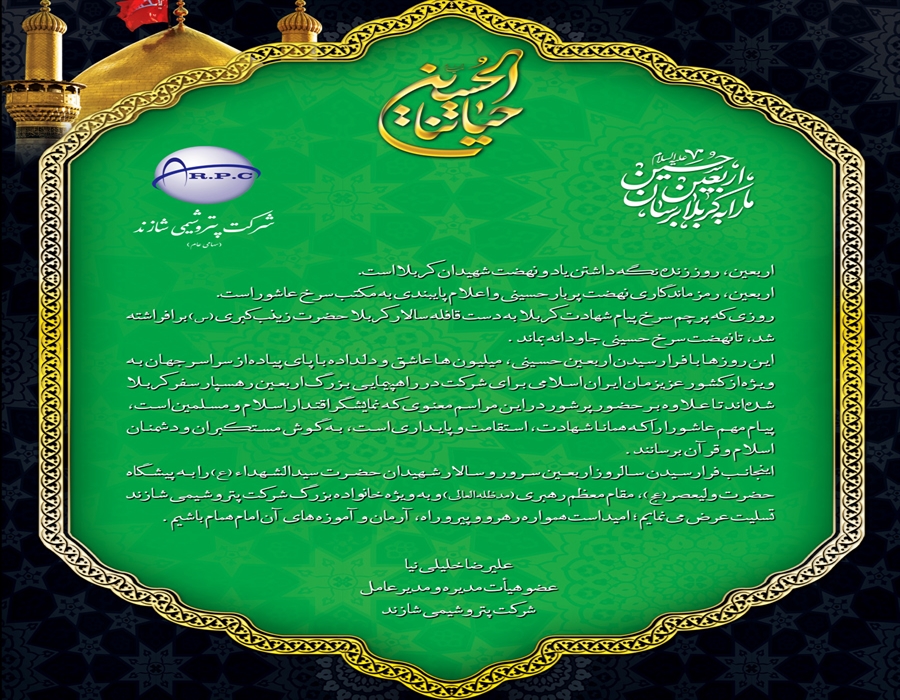 الحسین حیاتنا
اربعین حسین علیه‌السلام
ما را به کربلا برسان
A R.P.C
شرکت پتروشیمی شازند
(سهامی عام)
اربعین، روز زنده نگه داشتن یاد و نهضت شهیدان کربلا است.
اربعین، رمز ماندگاری نهضت پربار حسینی و اعلام پایبندی به مکتب سرخ عاشوراست.
روزی که پرچم سرخ پیام شهادت کربلا به دست قافله سالار کربلا حضرت زینب کبری (س) برافراشته
شد، تا نهضت سرخ حسینی جاودانه بماند .
این روزها با فرا رسیدن اربعین حسینی، میلیون ها عاشق و دلداده با پای پیاده از سراسر جهان به
ویژه از کشور عزیزمان ایران اسلامی برای شرکت در راهپیمایی بزرگ اربعین رهسپار سفر کربلا
شده‌اند تا علاوه بر حضور پرشور در این مراسم معنوی که نمایشگر اقتدار اسلام و مسلمین است،
پیام مهم عاشورا را که همانا شهادت، استقامت و پایداری است، به گوش مستکبران و دشمنان
اسلام و قرآن برسانند .
اینجانب فرا رسیدن سالروز اربعین سرور و سالار شهیدان حضرت سیدالشهداء (ع) را به پیشگاه
حضرت ولیعصر (عج)، مقام معظم رهبری (مدظله العالی) و به ویژه خانواده بزرگ شرکت پتروشیمی شازند
تسلیت عرض می نمایم؛ امید است همواره رهرو و پیرو راه، آرمان و آموزه های آن امام همام باشیم .
علیرضا خلیلی نیا
عضو هیأت مدیره و مدیر عامل
شرکت پتروشیمی شازند